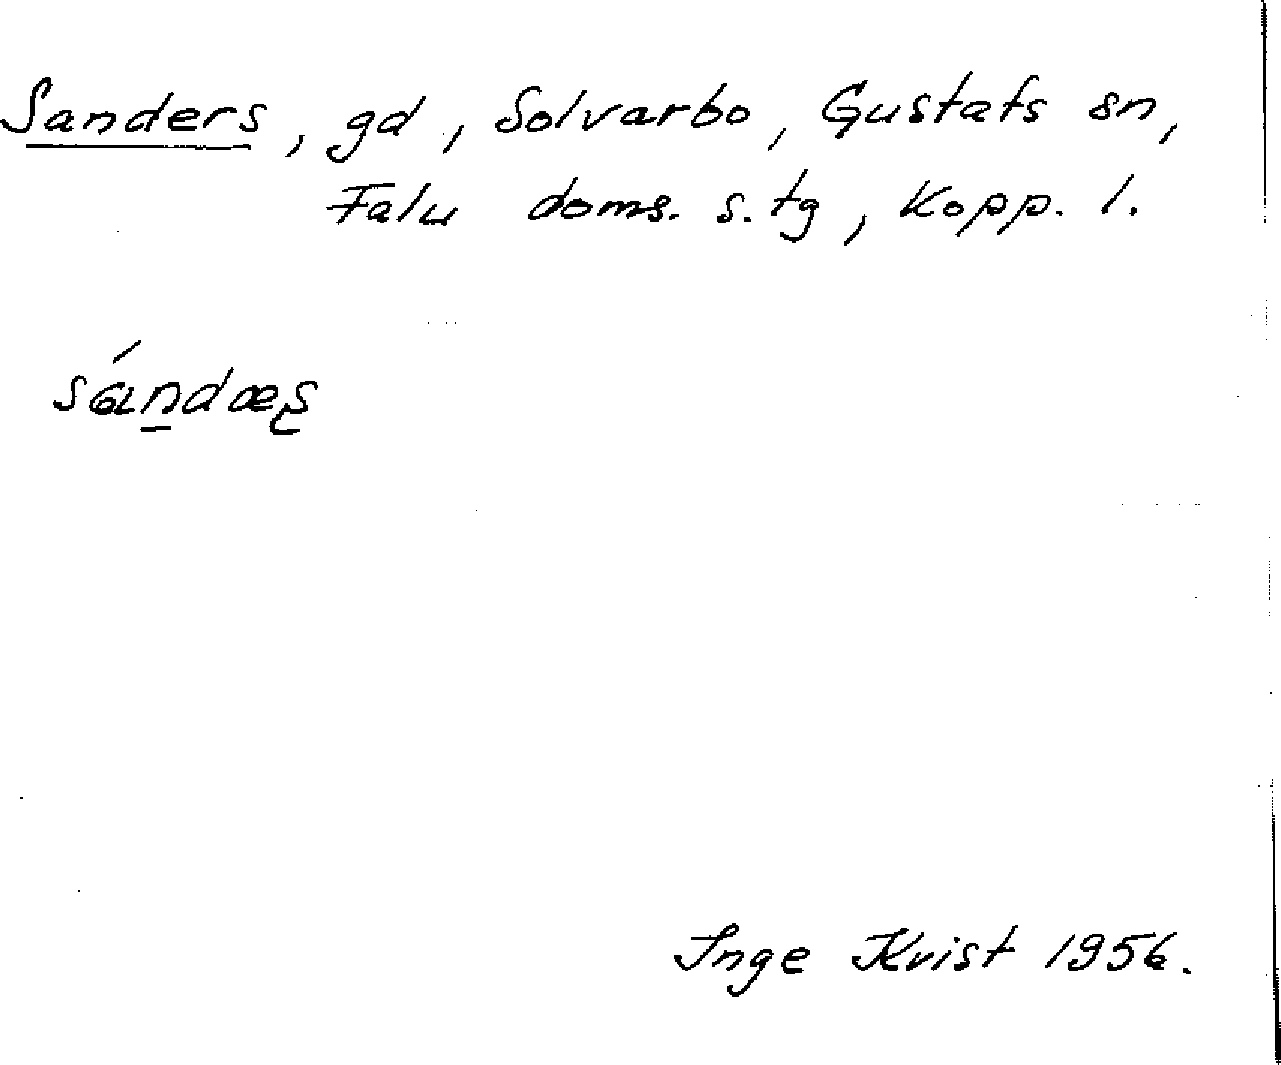 Sanders, gd, Solvarbo, Gustafs sn,
Falu doms. s. tg, Kopp. l.
sándæs̨
Inge Kvist 1956.